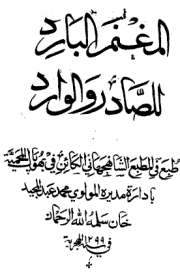 المغنم البارد
للصادر والوارد
طبع فى المطبع الشاهجهانى الكائن فى بهوپال المحمية
بادارة مديره المولوى محمد عبد المجيد
خان سلمه الله الرحمان
فى ١٢٩٩ الهجرية